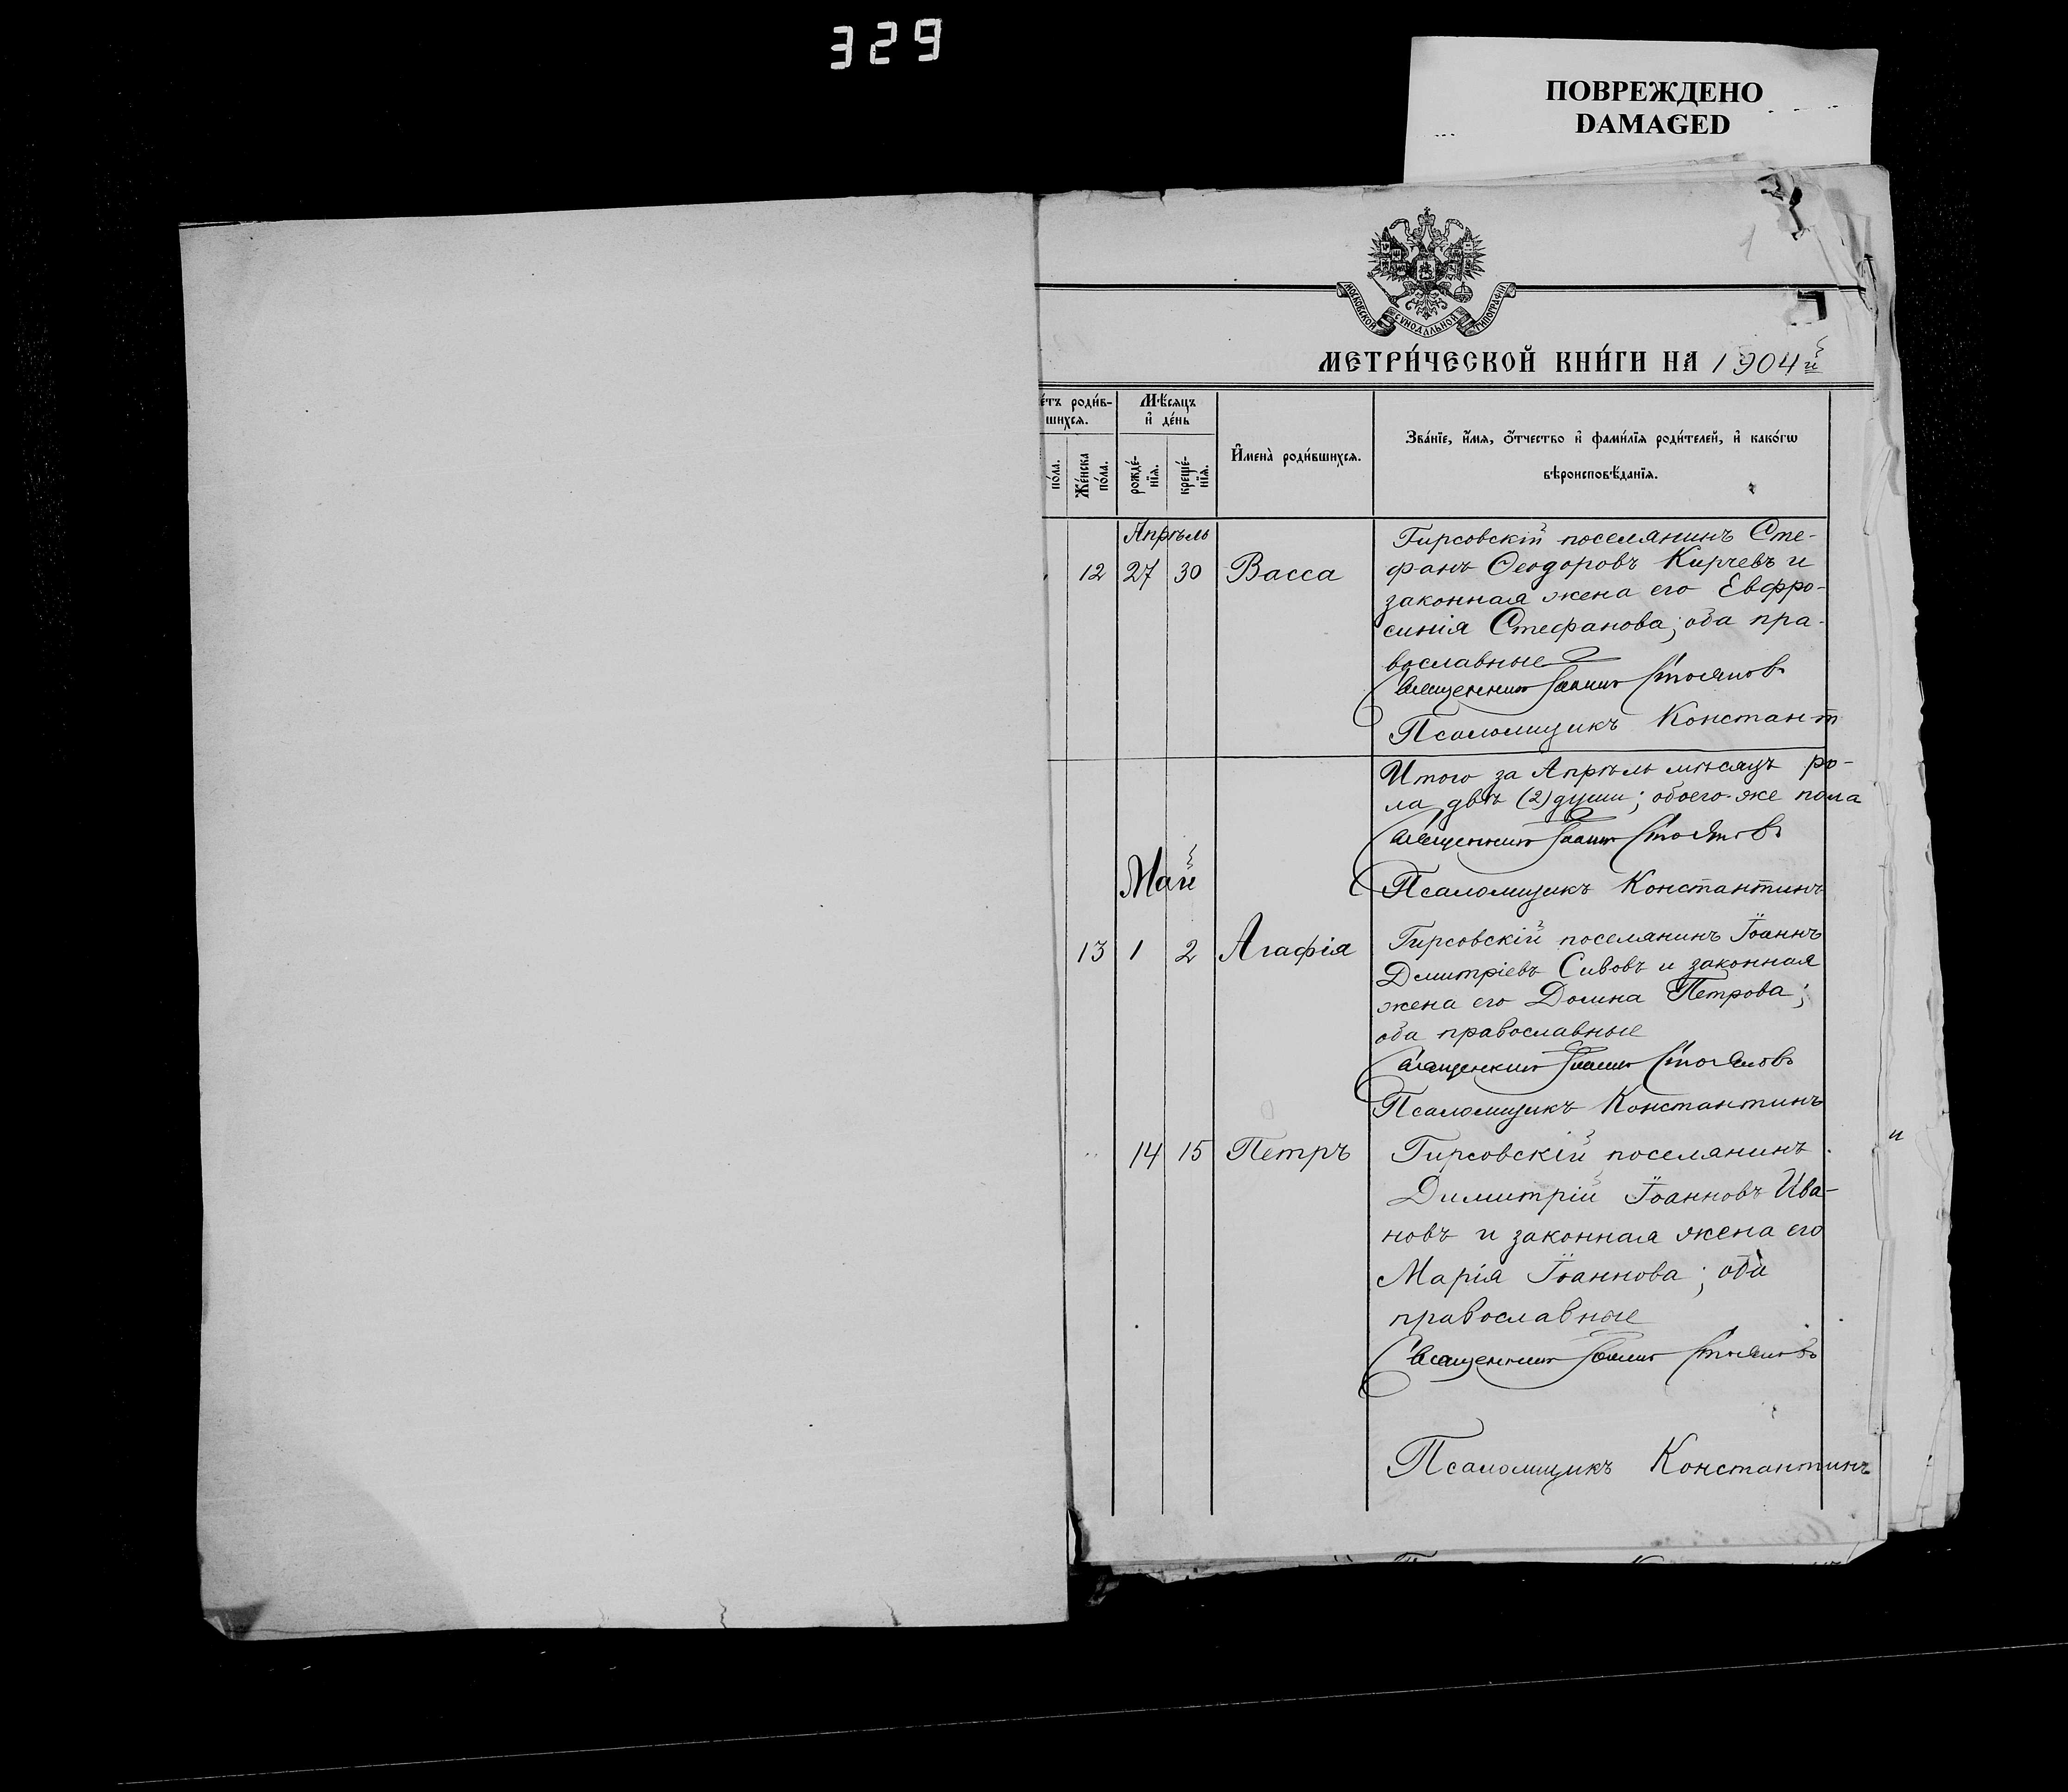 329
ПОВРЕЖДЕНО
DAMAGED
1
МОСКОВСКОЙ СѴНОДАЛЬНОЙ ТИПОГРАФІИ
МЕТРИ́ЧЕСКОЙ КНИ́ГИ НА 1904й
е́тъ роди́в-
шихся.
Мѣ́сяцъ
и҆ де́нь
по́ла.
Же́нска
по́ла.
рожде́-
нїя.
креще́-
нїя.
И҆мена̀ роди́вшихся.
Зва́нїе, и҆́мя, ѻ҆́тчество и҆ фами́лїя роди́телей, и҆ како́гѡ
вѣроисповѣ́данїя.
Апрѣль
12 27 30 Васса
Гирсовскій поселянинъ Сте-
фанъ Ѳеодоровъ Кирчевъ и
законная жена его Евфро-
синія Стефанова; оба пра-
вославные
Священникъ Іоаннъ Стояновъ
Псаломщикъ Константин
Итого за Апрѣль мѣсяцъ ро-
ла двѣ (2) души; обоего-же пола
Священникъ Іоаннъ Стояновъ
Май
Псаломщикъ Константинъ
13 1 2 Агафія
Гирсовскій поселянинъ Іоаннъ
Дмитріевъ Сивовъ и законная
жена его Домна Петрова;
оба православные
Священникъ Іоаннъ Стояновъ
Псаломщикъ Константинъ
" 14 15 Петръ
Гирсовскій поселянинъ
Димитрій Іоанновъ Ива-
новъ и законная жена его
Марія Іоаннова; оба
православные
Священникъ Іоаннъ Стояновъ
Псаломщикъ Константинъ